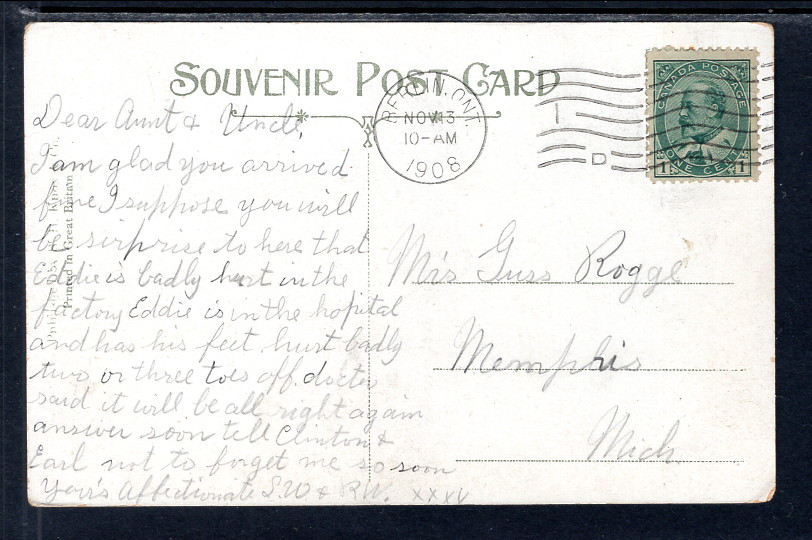 SOUVENIR POST CARD
BERLIN, ONT.
NOV 13
10-AM
1908
D
CANADA POSTAGE
ONE CENT
1 1
Dear Aunt & Uncle,
I am glad you arrived
fine I suppose you will
be sirprise to here that
Eddie is badly hurt in the
factory Eddie is in the hopital
and has his feet hurt badly
two or three toes off. docter
said it will be all right again
answer soon tell Clinton &
Earl not to forget me so soon
Your's Affectionate S.W & R.W. xxxv
Mrs Guss Rogge
Memphis
Mich.
Printed in Great Britain